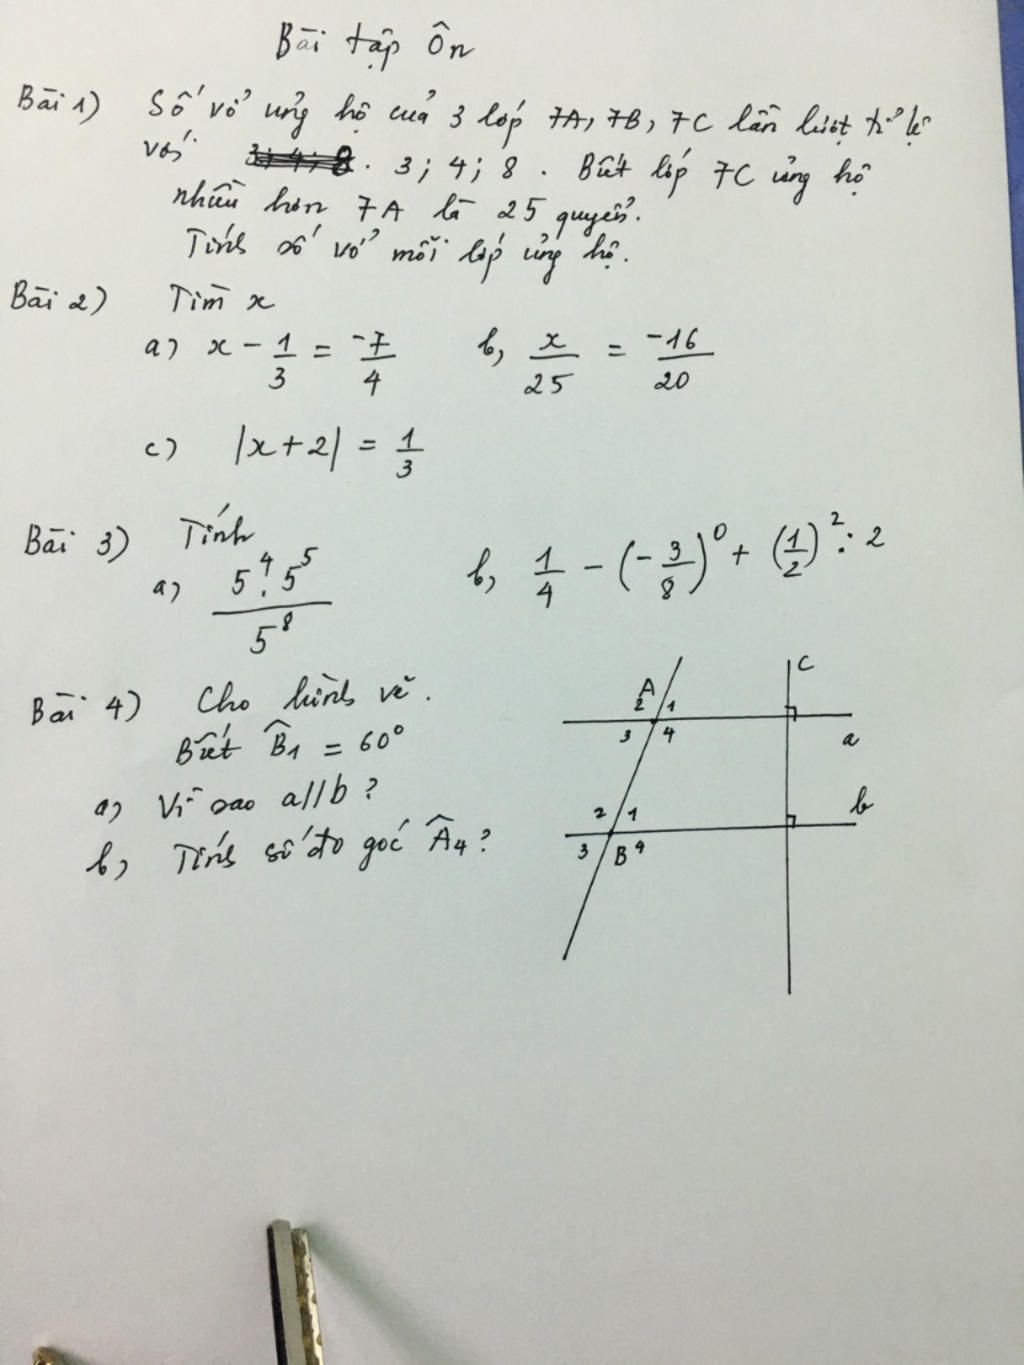 Bài tập Ôn
Bài 1) Số vở ủng hộ của 3 lớp 7A, 7B, 7C lần lượt tỉ lệ
với 3; 4; 8. 3; 4; 8. Biết lớp 7C ủng hộ
nhiều hơn 7A là 25 quyển.
Tính số vở mỗi lớp ủng hộ.
Bài 2) Tìm x
a) x - 1/3 = -7/4 b, x/25 = -16/20
c) |x + 2| = 1/3
Bài 3) Tính
a) 5⁴.5⁵/5⁸ b, 1/4 - (-3/8)⁰ + (1/2)² : 2
Bài 4) Cho hình vẽ.
Biết B̂₁ = 60°
a) Vì sao a//b ?
b, Tính số đo góc Â₄ ?
c
A
2 1
3 4
a
b
2 1
3 B 4